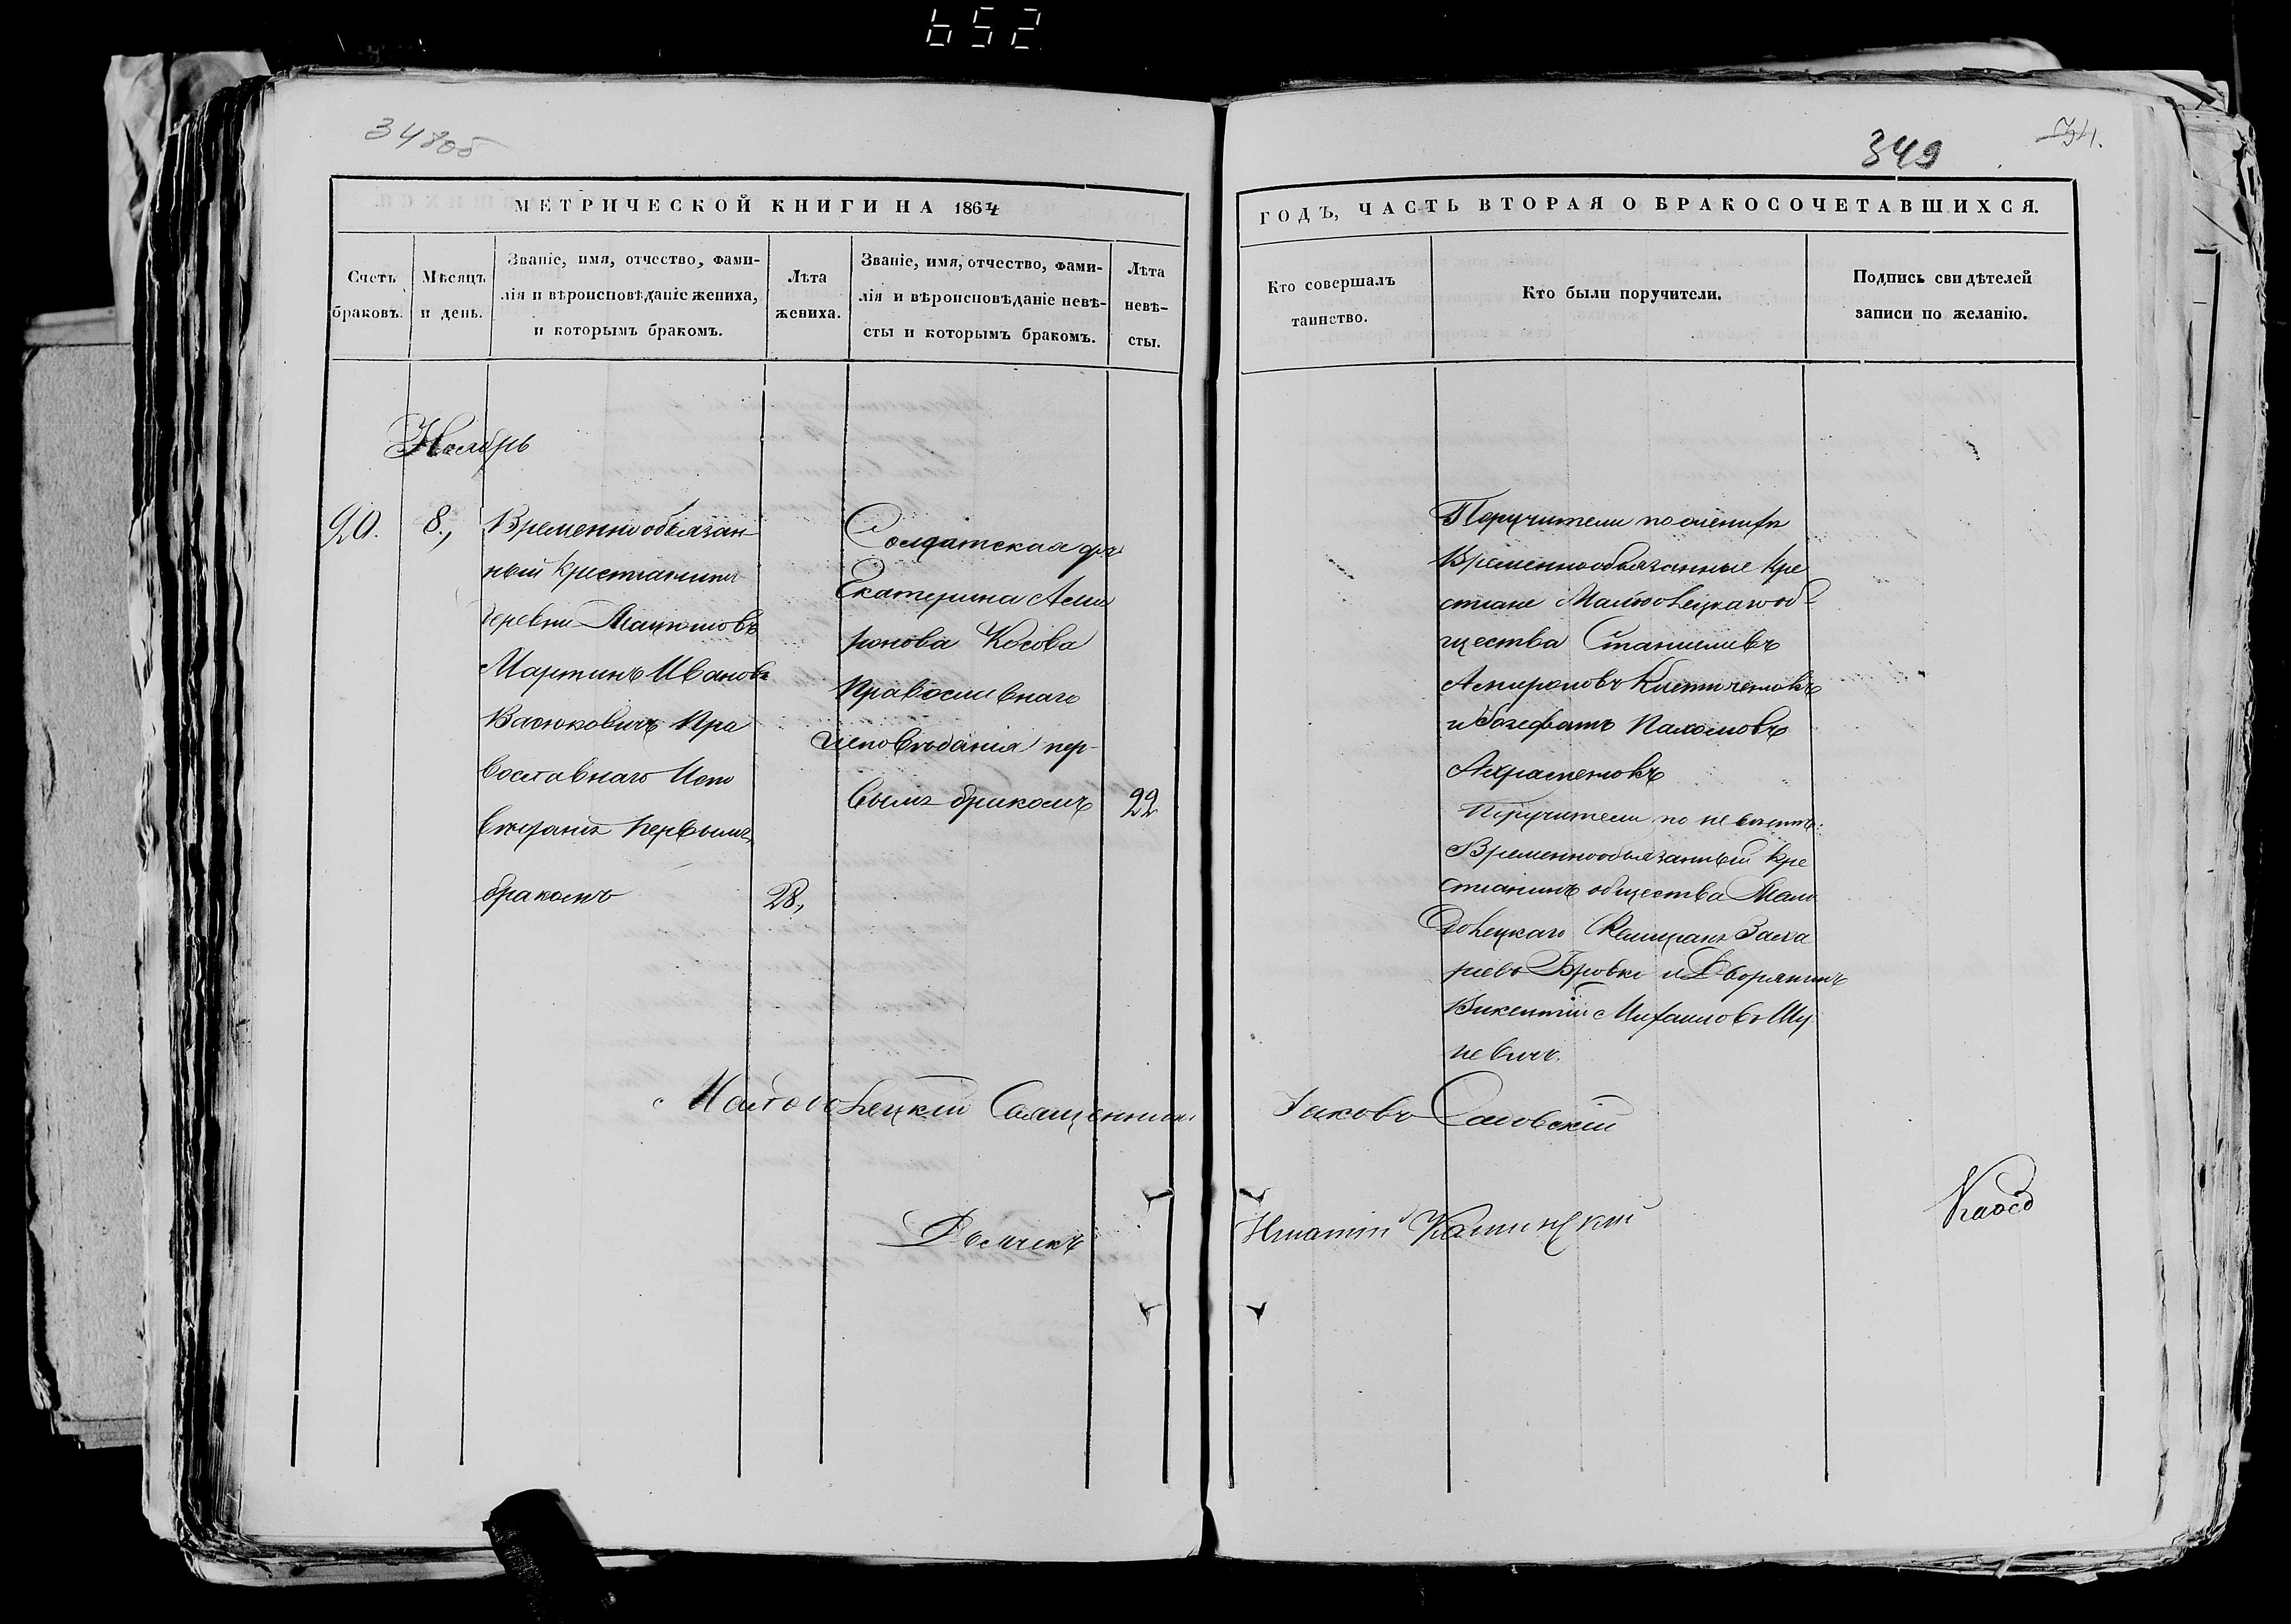 652
348об
349
34.
МЕТРИЧЕСКОЙ КНИГИ НА 1864
ГОДЪ, ЧАСТЬ ВТОРАЯ О БРАКОСОЧЕТАВШИХСЯ.
Счетъ
браковъ.
Мѣсяцъ
и день.
Званіе, имя, отчество, фами-
лія и вѣроисповѣданіе жениха,
и которымъ бракомъ.
Лѣта
жениха.
Званіе, имя, отчество, фами-
лія и вѣроисповѣданіе невѣ-
сты и которымъ бракомъ.
Лѣта
невѣ-
сты.
Кто совершалъ
таинство.
Кто были поручители.
Подпись свидѣтелей
записи по желанію.
Ноябрь
20.
8.,
Временно обязан-
ный крестьянинъ
деревни
Мартинъ Ивановъ
Васюковичъ Пра
вославнаго Испо
вѣданія первымъ
бракомъ
28,
Солдатская
Екатерина
Косова
Православнаго
исповѣданія пер-
вымъ бракомъ
22
Поручители по женихѣ
Временнообязанные кре
стьяне об-
щества Станиславъ
и Іозефатъ Пахомовъ
Поручители по невѣстѣ:
Временнообязанный кре
стьянинъ общества
Заха
ріевъ Бровка и Дворянинъ
Викентій Михаиловъ
невичъ.
Священникъ Іаковъ Садовскій
Дьячекъ Игнатій Калинскій